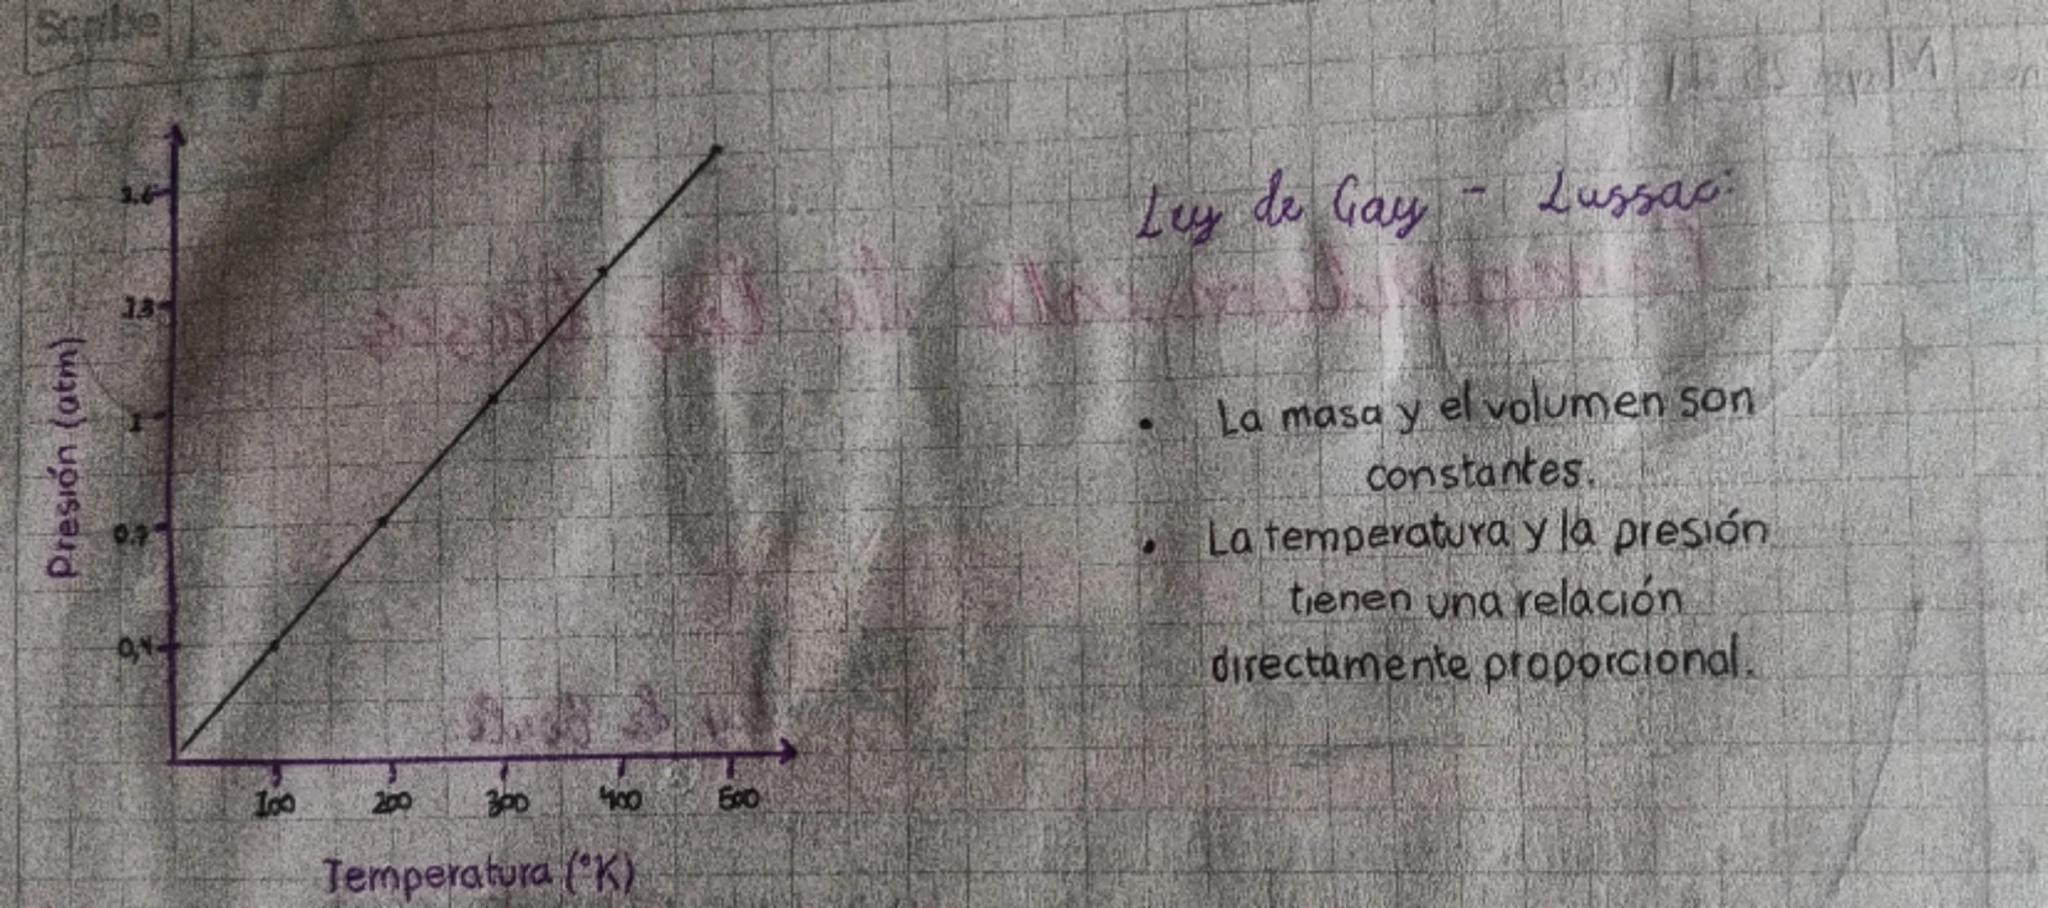 Scribe
Ley de Gay - Lussac:
1.6
1.3
1
0.7
0,4
Presión (atm)
100 200 300 400 500
Temperatura (°K)
• La masa y el volumen son
constantes.
• La temperatura y la presión
tienen una relación
directamente proporcional.